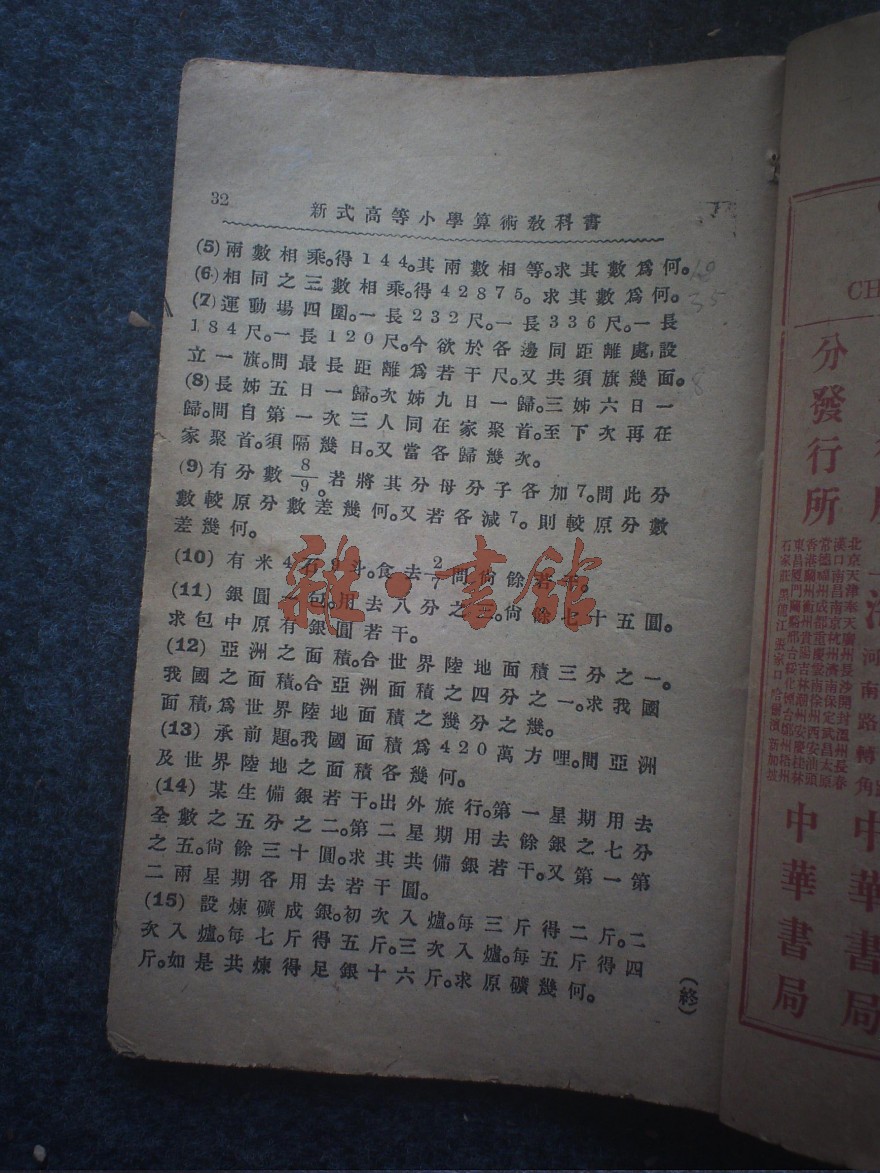 32
新式高等小學算術教科書
(5)兩數相乘。得144。其兩數相等。求其數爲何。
(6)相同之三數相乘。得42875。求其數爲何。
(7)運動場四圍。一長232尺。一長336尺。一長
184尺。一長120尺。今欲於各邊同距離處,設
立一旗。問最長距離爲若干尺。又共須旗幾面。
(8)長姊五日一歸。次姊九日一歸。三姊六日一
歸。問自第一次三人同在家聚首。至下次再在
家聚首。須隔幾日。又當各歸幾次。
(9)有分數8/9。若將其分母分子各加7。問此分
數較原分數差幾何。又若各減7。則較原分數
差幾何。
(10)有米4石 斗。食去2/7問尙餘若干。
(11)銀圓一包。用去八分之三。尙餘七十五圓。
求包中原有銀圓若干。
(12)亞洲之面積。合世界陸地面積三分之一。
我國之面積。合亞洲面積之四分之一。求我國
面積,爲世界陸地面積之幾分之幾。
(13)承前題。我國面積爲420萬方哩。問亞洲
及世界陸地之面積各幾何。
(14)某生備銀若干。出外旅行。第一星期用去
全數之五分之二。第二星期用去餘銀之七分
之五。尙餘三十圓。求其共備銀若干。又第一第
二兩星期各用去若干圓。
(15)設煉礦成銀。初次入爐。每三斤得二斤。二
次入爐。每七斤得五斤。三次入爐。每五斤得四
斤。如是共煉得足銀十六斤。求原礦幾何。
(終)
35
雜·書館
CH
分發行所
中華書局
河南路轉角
中華書局